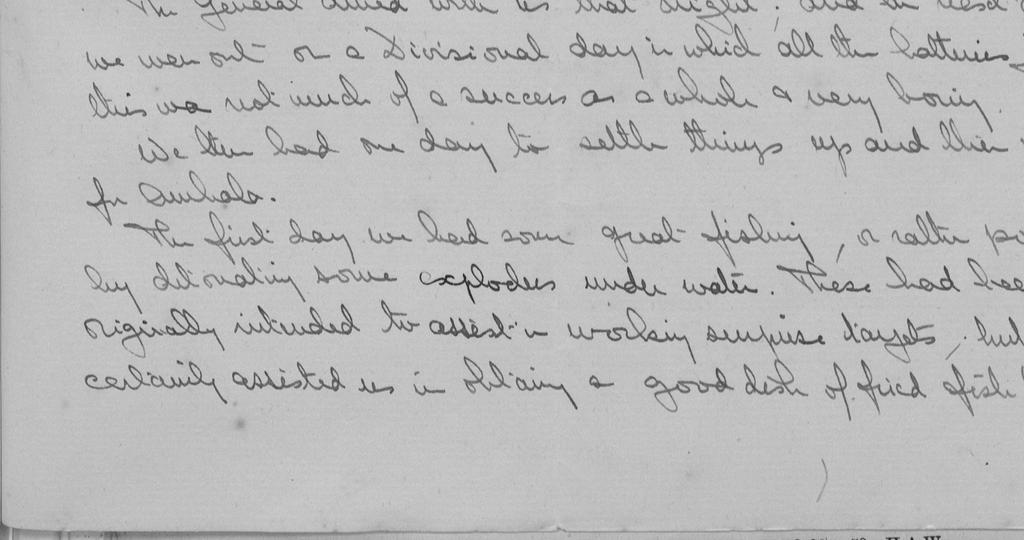 The General dined with us that night, and the next
we were out on a Divisional day in which all the batteries
this was not much of a success as a whole & very boring.
We then had one day to settle things up and then
for Ambala.
The first day we had some great fishing, or rather
by detonating some exploders under water. These had
originally intended to assist in working surprise targets, but
certainly assisted us in obtaining a good dish of fried fish